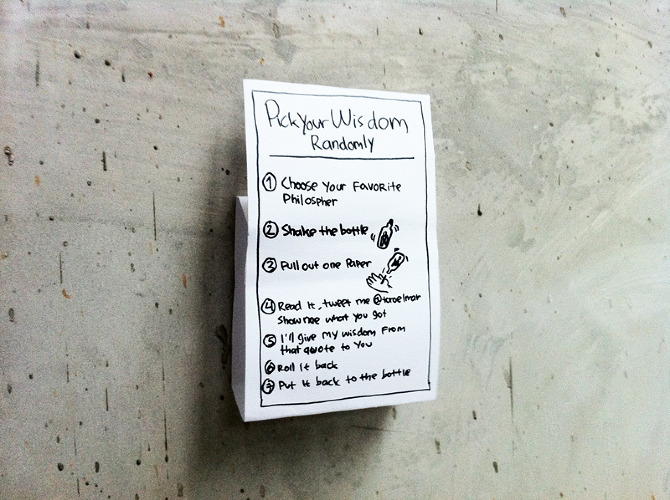 Pick Your Wisdom
Randomly
1 Choose Your Favorite
Philospher
2 Shake the bottle
3 Pull out one Paper
4 Read It, tweet me
show me what you got
5 I'll give my wisdom From
that quote to You
6 Roll It back
7 Put It back to the bottle